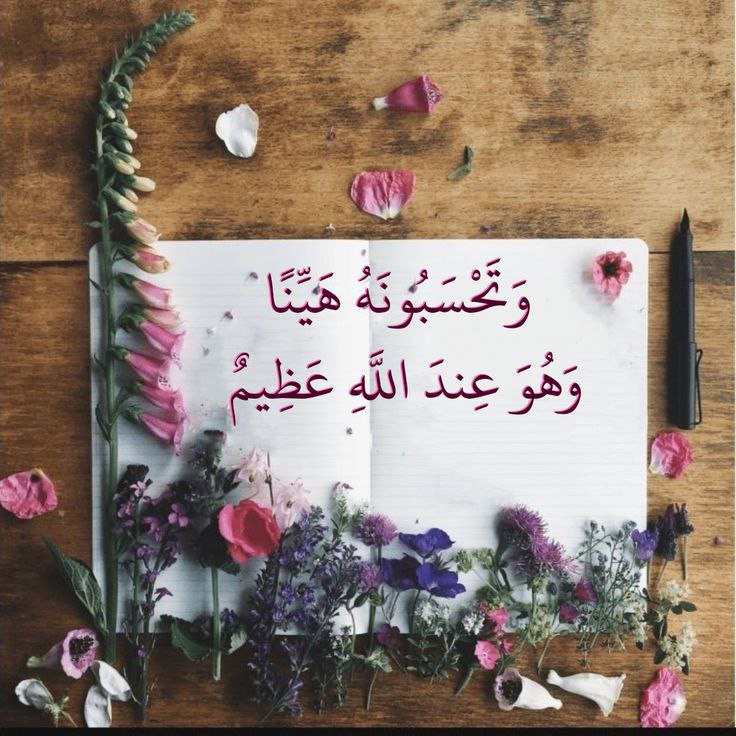 وَتَحْسَبُونَهُ هَيِّنًا
وَهُوَ عِندَ اللَّهِ عَظِيمٌ